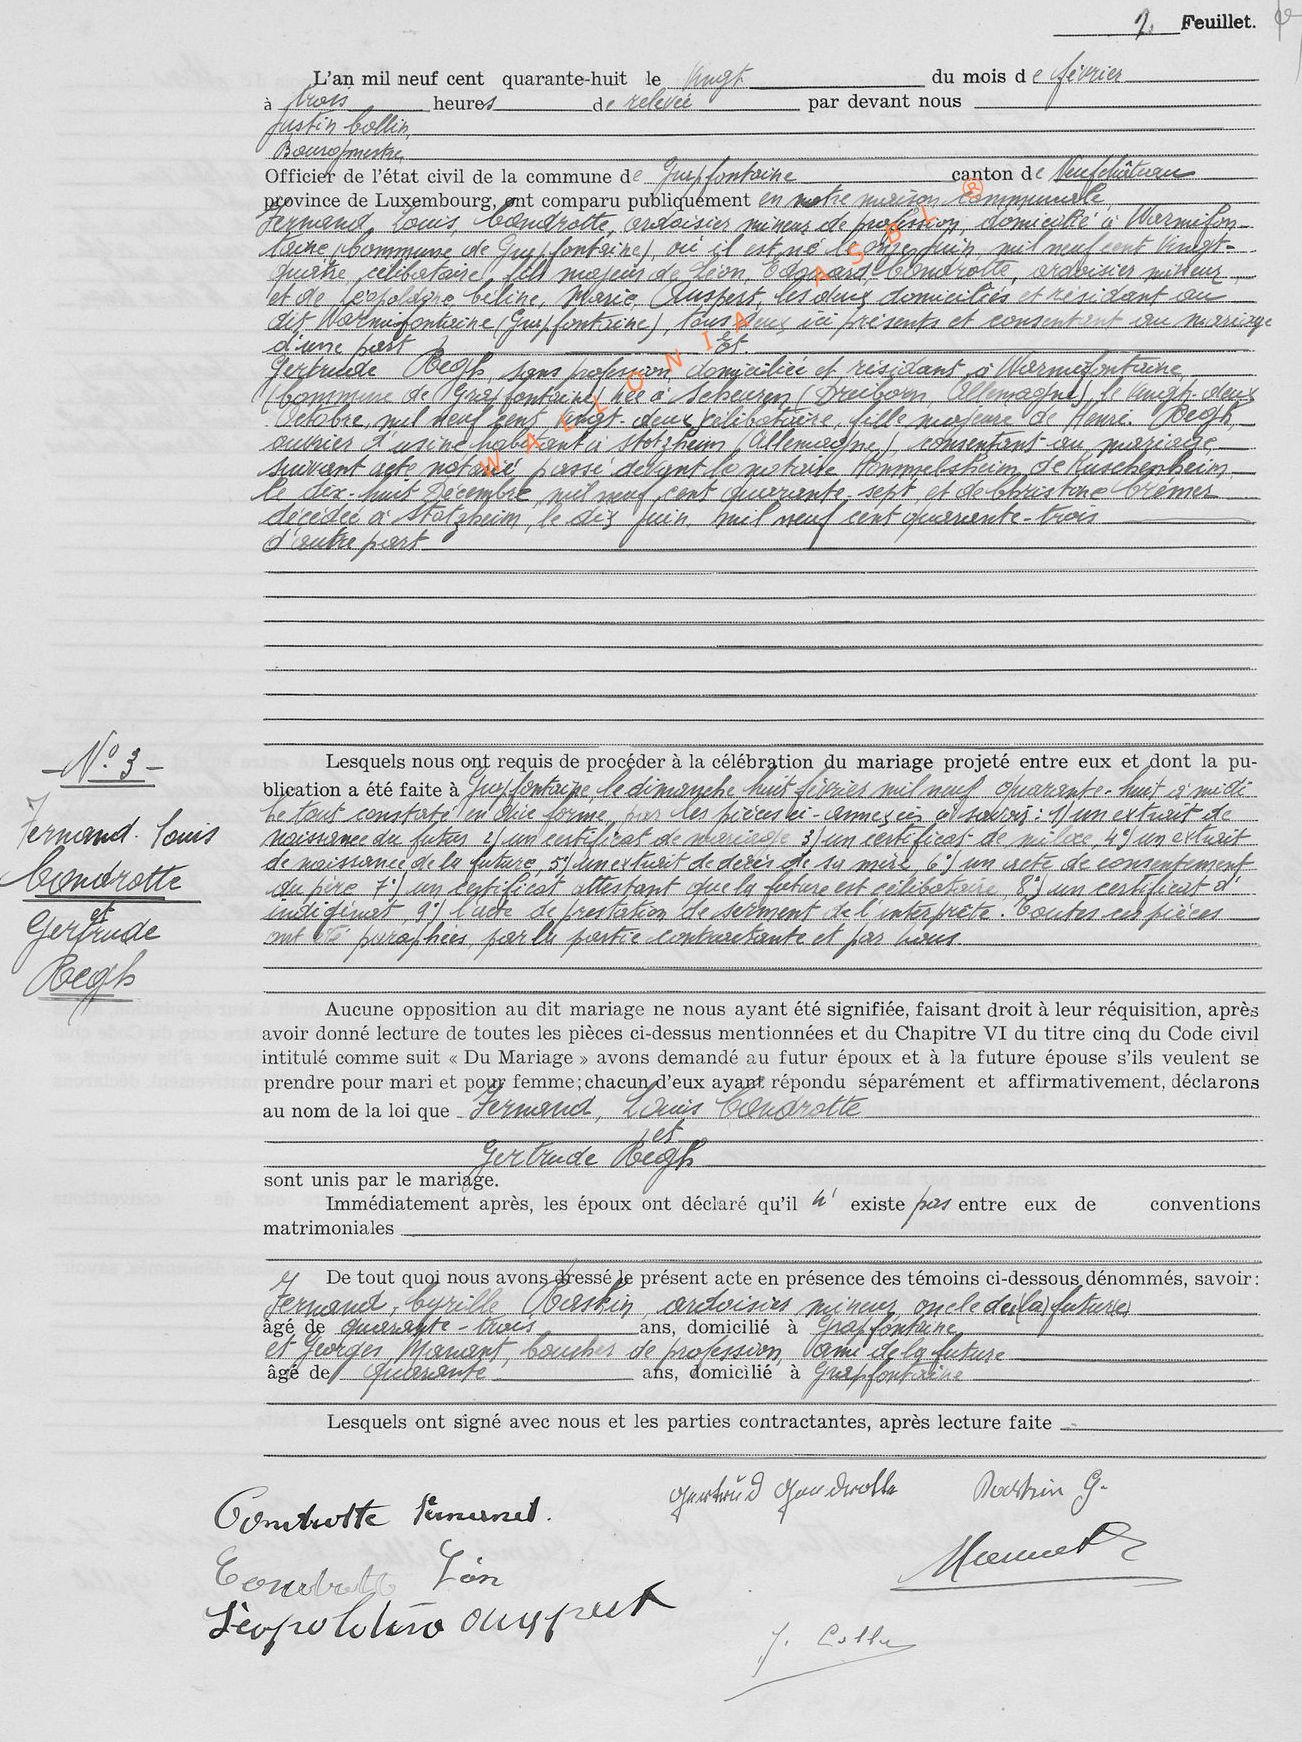 2. Feuillet.
L'an mil neuf cent quarante-huit le vingt du mois de février
à trois heures de relevée par devant nous
Justin Collin,
Bourgmestre
Officier de l'état civil de la commune de Grapfontaine canton de Neufchâteau
province de Luxembourg, ont comparu publiquement en notre maison communale,
Fernand, Louis, Condrotte, ardoisier mineur de profession, domicilié à Warmifon-
taine (commune de Grapfontaine), où il est né le onze juin mil neuf cent vingt-
quatre, célibataire, fils majeur de Léon, Edouard, Condrotte, ardoisier mineur
et de Léopoldine, Céline, Marie, Ruspert, les deux domiciliés et résidant au
dit Warmifontaine (Grapfontaine), tous deux ici présents et consentant au mariage
d'une part
Et.
Gertrude Regh, sans profession, domiciliée et résidant à Warmifontaine,
(commune de Grapfontaine) née à Scheuren (Dreiborn, Allemagne), le vingt-deux
Octobre, mil neuf cent vingt-deux, célibataire, fille majeure de Henri Regh,
ouvrier d'usine habitant à Stotzheim (Allemagne), consentant au mariage,
suivant acte notarié passé devant le notaire Himmelsheim, de Kuschenheim,
le dix-huit Décembre, mil neuf cent quarante-sept, et de Christine Crémer
décédée à Stotzheim, le dix juin, mil neuf cent quarante-trois
d'autre part
WALLONIA ASBL ®
- N° 3 -
Fernand. Louis
Condrotte
et
Gertrude
Regh
Lesquels nous ont requis de procéder à la célébration du mariage projeté entre eux et dont la pu-
blication a été faite à Grapfontaine, le dimanche huit février mil neuf quarante-huit à midi
Le tout constaté en due forme, par les pièces ci-annexées à savoir : 1) un extrait de
naissance du futur 2) un certificat de mariage 3) un certificat de milice, 4°) un extrait
de naissance de la future, 5°) un extrait de décès de sa mère 6°) un acte de consentement
du père 7°) un certificat attestant que la future est célibataire, 8°) un certificat d'
indigénat, 9°) l'acte de prestation de serment de l'interprète. Toutes ces pièces
ont été paraphées par la partie contractante et par nous.
Aucune opposition au dit mariage ne nous ayant été signifiée, faisant droit à leur réquisition, après
avoir donné lecture de toutes les pièces ci-dessus mentionnées et du Chapitre VI du titre cinq du Code civil
intitulé comme suit « Du Mariage » avons demandé au futur époux et à la future épouse s'ils veulent se
prendre pour mari et pour femme; chacun d'eux ayant répondu séparément et affirmativement, déclarons
au nom de la loi que Fernand, Louis Condrotte
et
Gertrude Regh
sont unis par le mariage.
Immédiatement après, les époux ont déclaré qu'il n' existe pas entre eux de conventions
matrimoniales
De tout quoi nous avons dressé le présent acte en présence des témoins ci-dessous dénommés, savoir :
Fernand, Cyrille Raskin, ardoisier mineur oncle de (la) future
âgé de quarante-trois ans, domicilié à Grapfontaine
et Georges Manant, boucher de profession, ami de la future
âgé de quarante ans, domicilié à Grapfontaine
Lesquels ont signé avec nous et les parties contractantes, après lecture faite
Condrotte Fernand. Gertrud Condrotte G.
Condrotte Léon Manant
Léopoldine
J. Collin